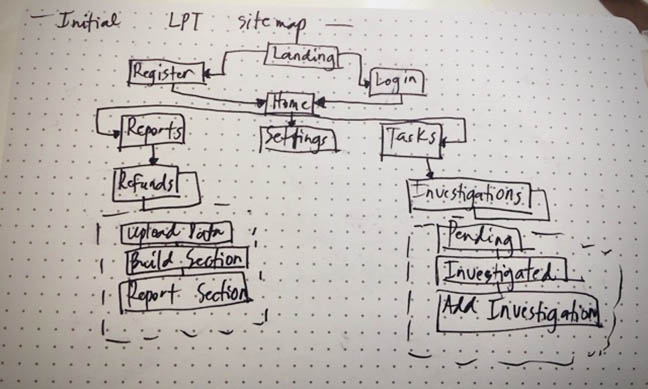 Initial LPT sitemap
Landing
Register
Login
Home
Reports
Settings
Tasks
Refunds
Investigations
Upload Data
Build Section
Report Section
Pending
Investigated
Add Investigation